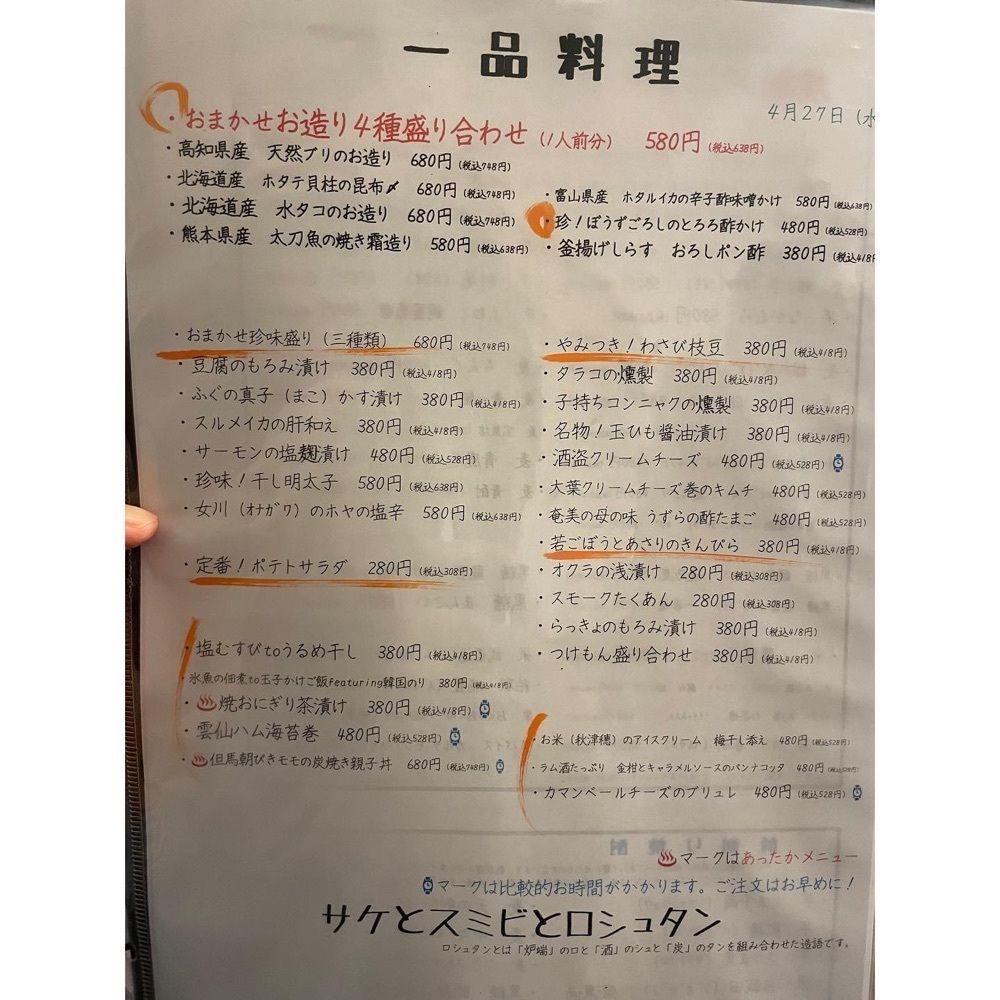 一品料理
4月27日（水
・おまかせお造り4種盛り合わせ（1人前分） 580円（税込638円）
・高知県産 天然ブリのお造り 680円（税込748円）
・北海道産 ホタテ貝柱の昆布〆 680円（税込748円）
・北海道産 水タコのお造り 680円（税込748円）
・熊本県産 太刀魚の焼き霜造り 580円（税込638円）
・富山県産 ホタルイカの辛子酢味噌かけ 580円（税込638円）
・珍！ぼうずごろしのとろろ酢かけ 480円（税込528円）
・釜揚げしらす おろしポン酢 380円（税込418円
・おまかせ珍味盛り（三種類） 680円（税込748円）
・豆腐のもろみ漬け 380円（税込418円）
・ふぐの真子（まこ）かす漬け 380円（税込418円）
・スルメイカの肝和え 380円（税込418円）
・サーモンの塩麹漬け 480円（税込528円）
・珍味！干し明太子 580円（税込638円）
・女川（オナガワ）のホヤの塩辛 580円（税込638円）
・定番！ポテトサラダ 280円（税込308円）
・塩むすびtoうるめ干し 380円（税込418円）
・氷魚の佃煮to玉子かけご飯featuring韓国のり 380円（税込418円）
・♨焼おにぎり茶漬け 380円（税込418円）⌚
・雲仙ハム海苔巻 480円（税込528円）⌚
・♨但馬朝びきモモの炭焼き親子丼 680円（税込748円）⌚
・やみつき！わさび枝豆 380円（税込418円）
・タラコの燻製 380円（税込418円）
・子持ちコンニャクの燻製 380円（税込418円）
・名物！玉ひも醤油漬け 380円（税込418円）
・酒盗クリームチーズ 480円（税込528円）⌚
・大葉クリームチーズ巻のキムチ 480円（税込528円）
・奄美の母の味 うずらの酢たまご 480円（税込528円）
・若ごぼうとあさりのきんぴら 380円（税込418円）
・オクラの浅漬け 280円（税込308円）
・スモークたくあん 280円（税込308円）
・らっきょのもろみ漬け 380円（税込418円）
・つけもん盛り合わせ 380円（税込418円）
・お米（秋津穂）のアイスクリーム 梅干し添え 480円（税込528円）
・ラム酒たっぷり 金柑とキャラメルソースのパンナコッタ 480円（税込528円）
・カマンベールチーズのブリュレ 480円（税込528円）⌚
♨マークはあったかメニュー
⌚マークは比較的お時間がかかります。ご注文はお早めに！
サケとスミビとロシュタン
ロシュタンとは「炉端」のロと「酒」のシュと「炭」のタンを組み合わせた造語です。